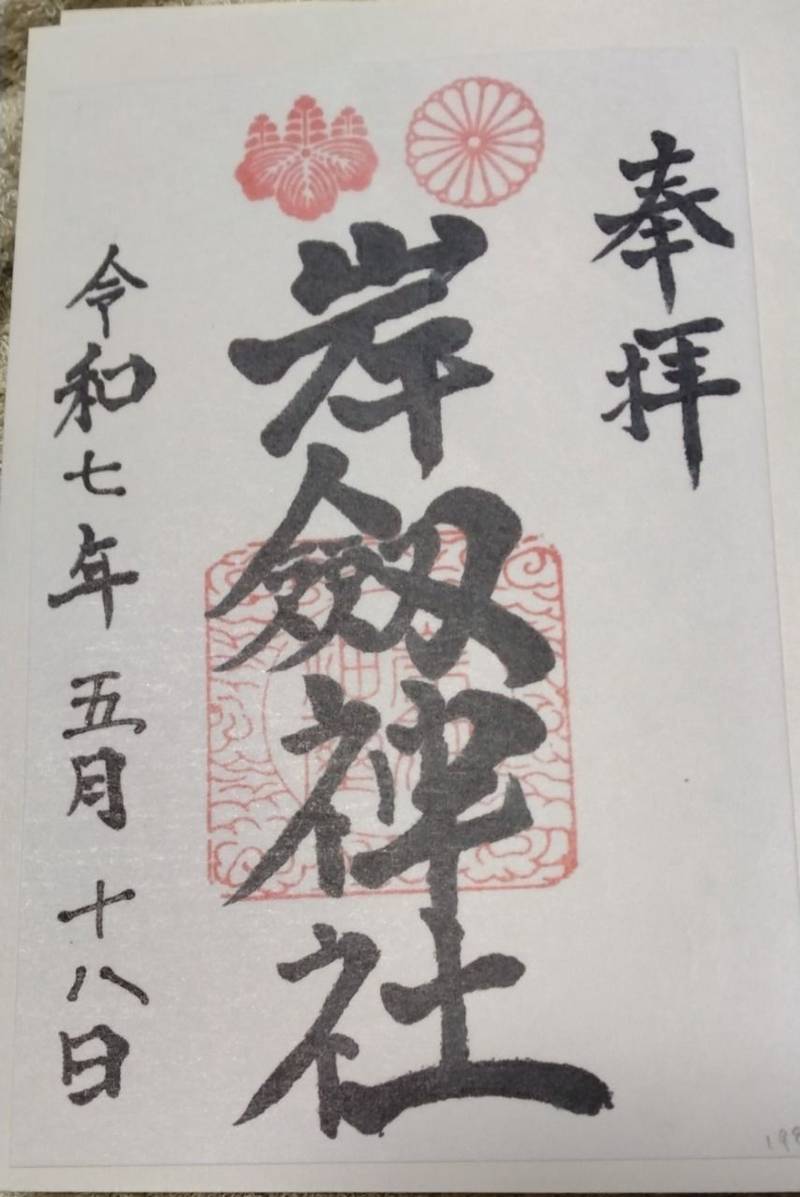 奉拝
岸劔神社
令和七年五月十八日
198